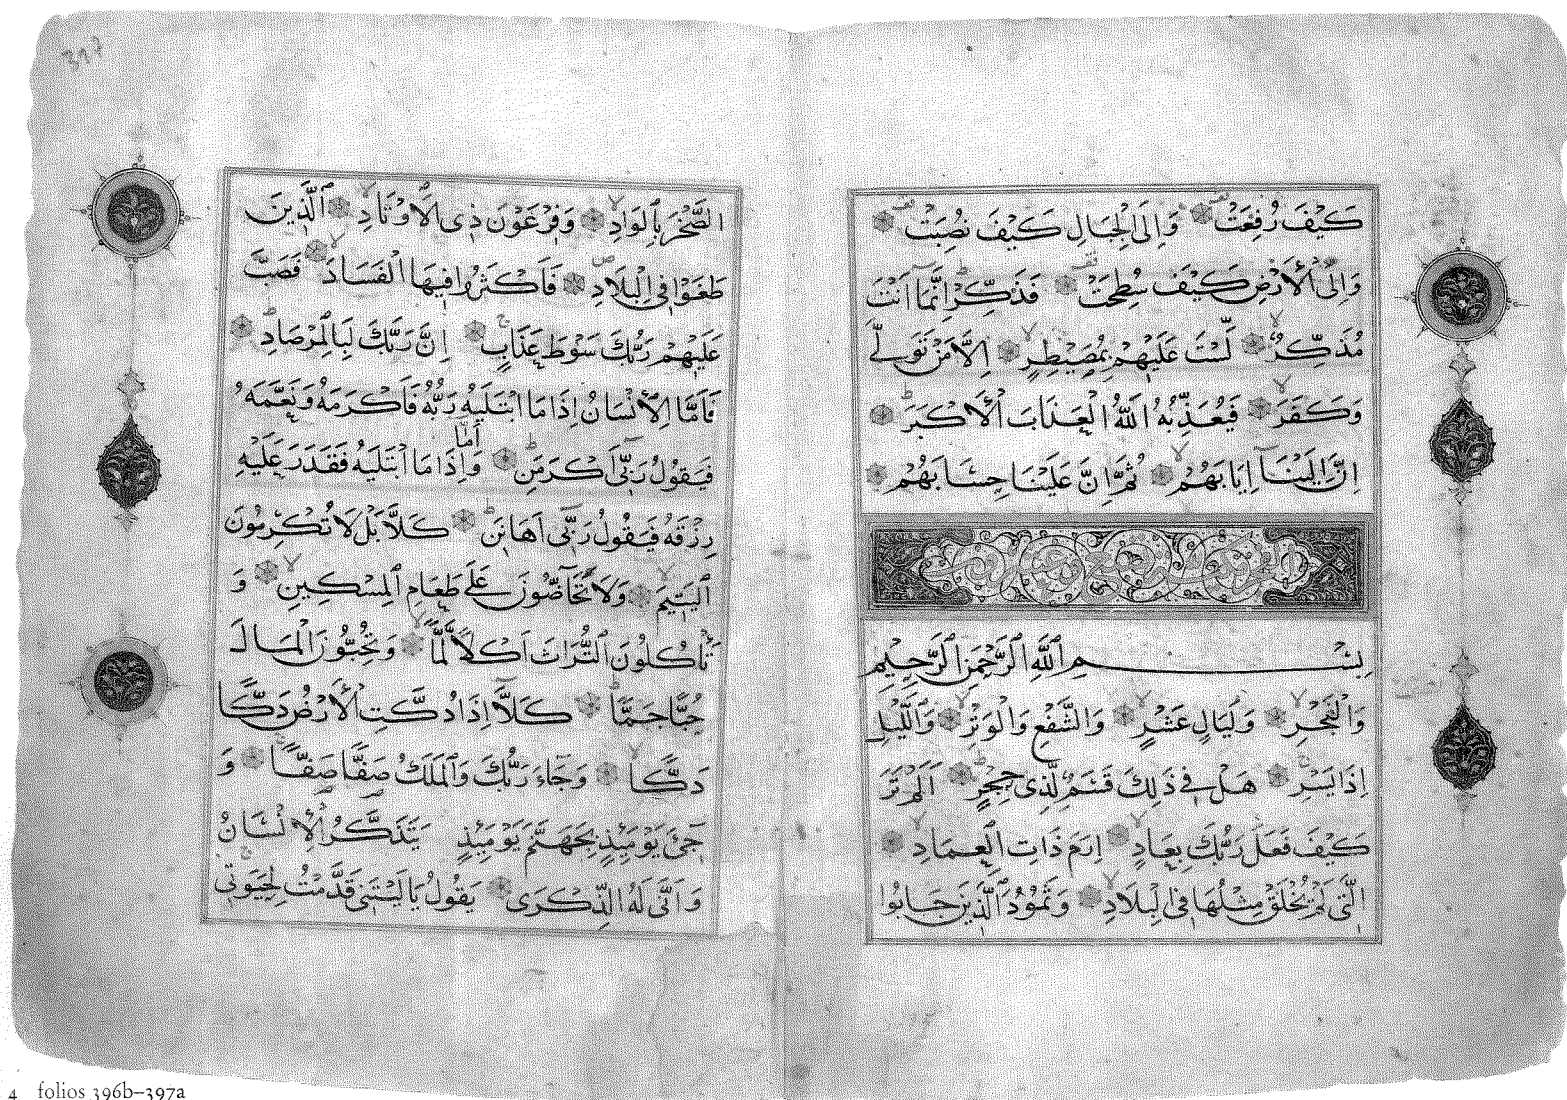 كَيْفَ رُفِعَتْ وَاِلَى الْجِبَالِ كَيْفَ نُصِبَتْ
وَاِلَى الْاَرْضِ كَيْفَ سُطِحَتْ فَذَكِّرْ اِنَّمَا اَنْتَ
مُذَكِّرٌ لَسْتَ عَلَيْهِمْ بِمُصَيْطِرٍ اِلَّا مَنْ تَوَلّٰى
وَكَفَرَ فَيُعَذِّبُهُ اللّٰهُ الْعَذَابَ الْاَكْبَرَ
اِنَّ اِلَيْنَا اِيَابَهُمْ ثُمَّ اِنَّ عَلَيْنَا حِسَابَهُمْ
بِسْمِ اللّٰهِ الرَّحْمٰنِ الرَّحِيْمِ
وَالْفَجْرِ وَلَيَالٍ عَشْرٍ وَالشَّفْعِ وَالْوَتْرِ وَالَّيْلِ
اِذَا يَسْرِ هَلْ فِي ذٰلِكَ قَسَمٌ لِّذِى حِجْرٍ اَلَمْ تَرَ
كَيْفَ فَعَلَ رَبُّكَ بِعَادٍ اِرَمَ ذَاتِ الْعِمَادِ
الَّتِى لَمْ يُخْلَقْ مِثْلُهَا فِى الْبِلَادِ وَثَمُوْدَ الَّذِيْنَ جَابُوا
397
الصَّخْرَ بِالْوَادِ وَفِرْعَوْنَ ذِى الْاَوْتَادِ الَّذِيْنَ
طَغَوْا فِى الْبِلَادِ فَاَكْثَرُوا فِيْهَا الْفَسَادَ فَصَبَّ
عَلَيْهِمْ رَبُّكَ سَوْطَ عَذَابٍ اِنَّ رَبَّكَ لَبِالْمِرْصَادِ
فَاَمَّا الْاِنْسَانُ اِذَا مَا ابْتَلَيهُ رَبُّهُ فَاَكْرَمَهُ وَنَعَّمَهُ
فَيَقُوْلُ رَبِّى اَكْرَمَنِ وَ اَمَّا اِذَا مَا ابْتَلَيهُ فَقَدَرَ عَلَيْهِ
رِزْقَهُ فَيَقُوْلُ رَبِّى اَهَانَنِ كَلَّا بَلْ لَا تُكْرِمُوْنَ
الْيَتِيْمَ وَلَا تَحَاضُّوْنَ عَلٰى طَعَامِ الْمِسْكِيْنِ وَ
تَأْكُلُوْنَ التُّرَاثَ اَكْلًا لَّمًّا وَتُحِبُّوْنَ الْمَالَ
حُبًّا جَمًّا كَلَّا اِذَا دُكَّتِ الْاَرْضُ دَكًّا
دَكًّا وَجَاءَ رَبُّكَ وَالْمَلَكُ صَفًّا صَفًّا وَ
جِئَ يَوْمَئِذٍ بِجَهَنَّمَ يَوْمَئِذٍ يَتَذَكَّرُ الْاِنْسَانُ
وَاَنّٰى لَهُ الذِّكْرٰى يَقُوْلُ يَا لَيْتَنِى قَدَّمْتُ لِحَيَوتِى
4 folios 396b–397a